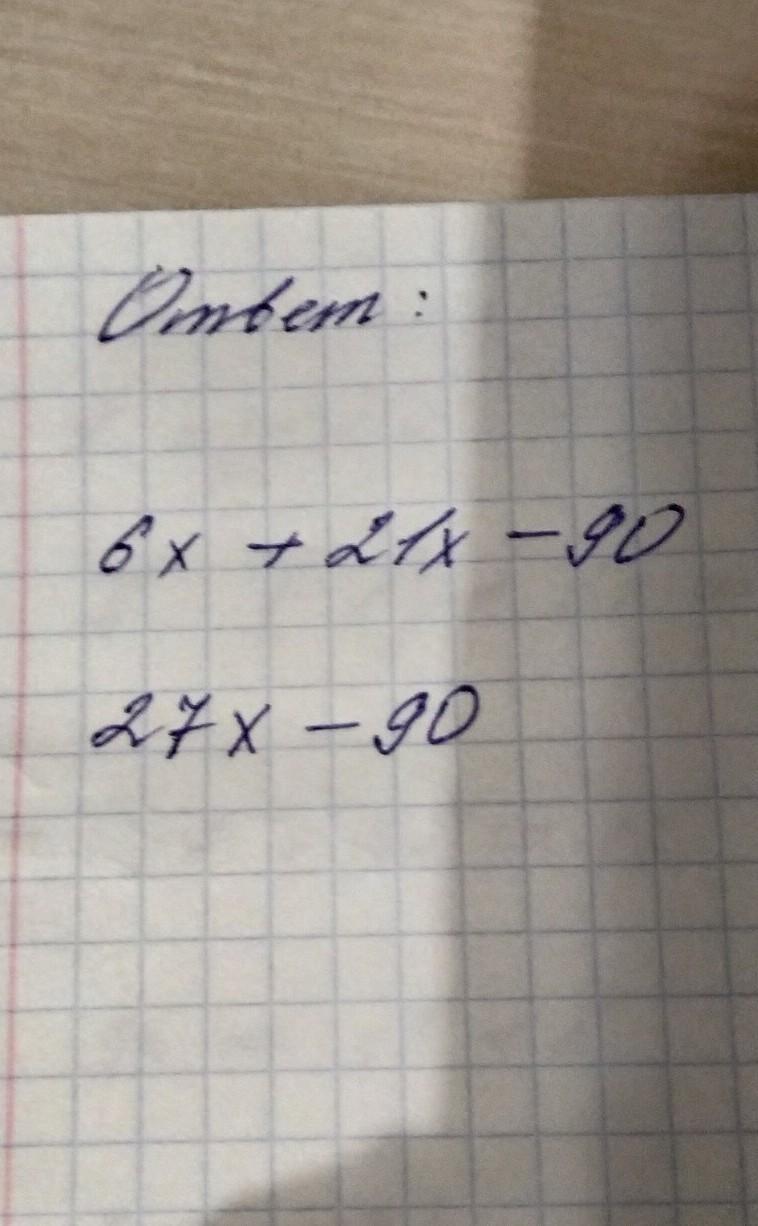 Ответ:
6x + 21x - 90
27x - 90